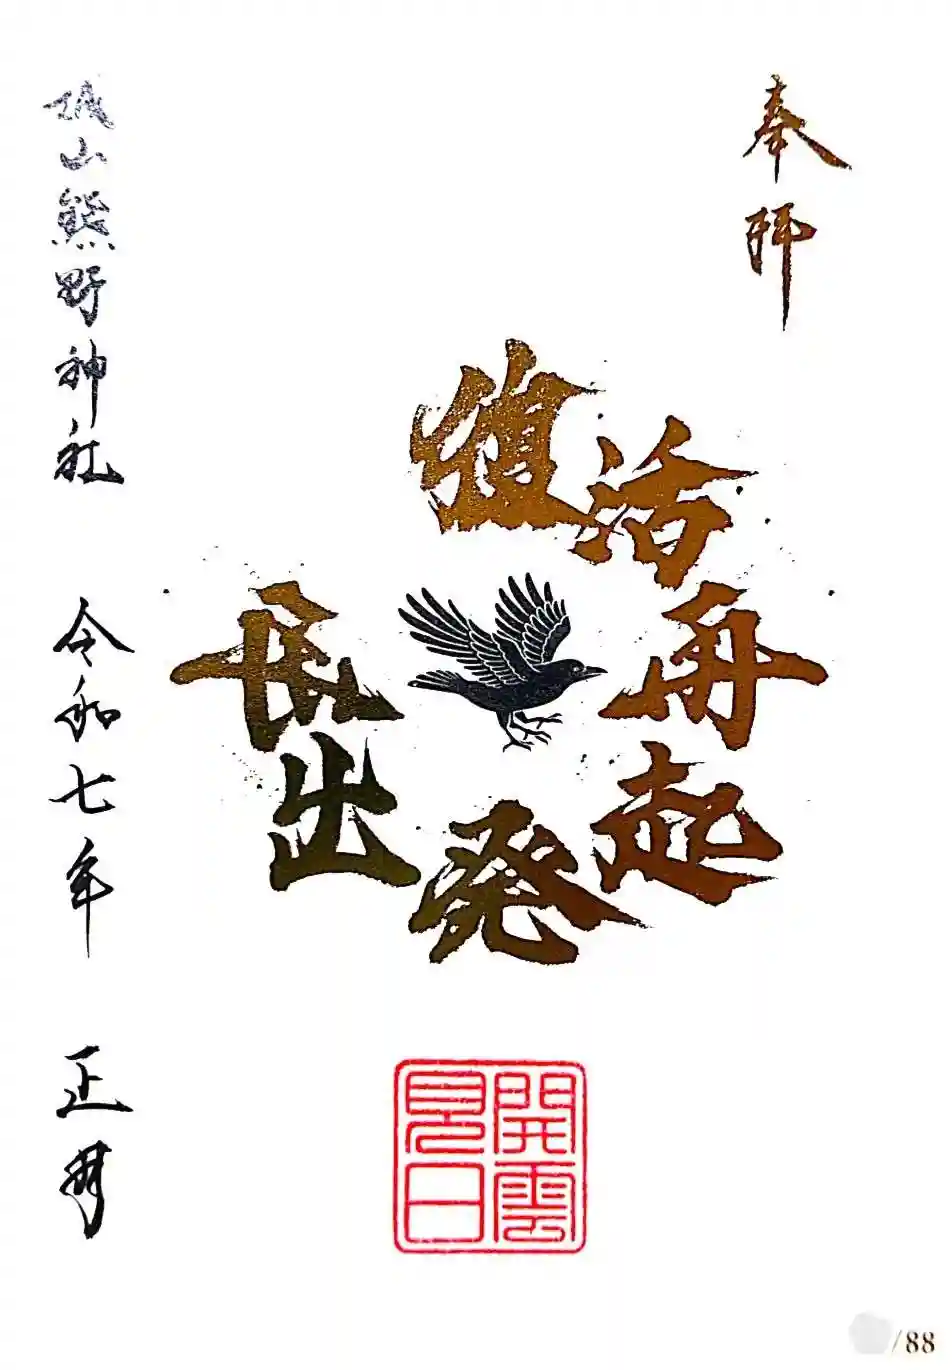 奉拝
復活
再起
再出
発
城山熊野神社
令和七年
正月
開雲
見日
/88